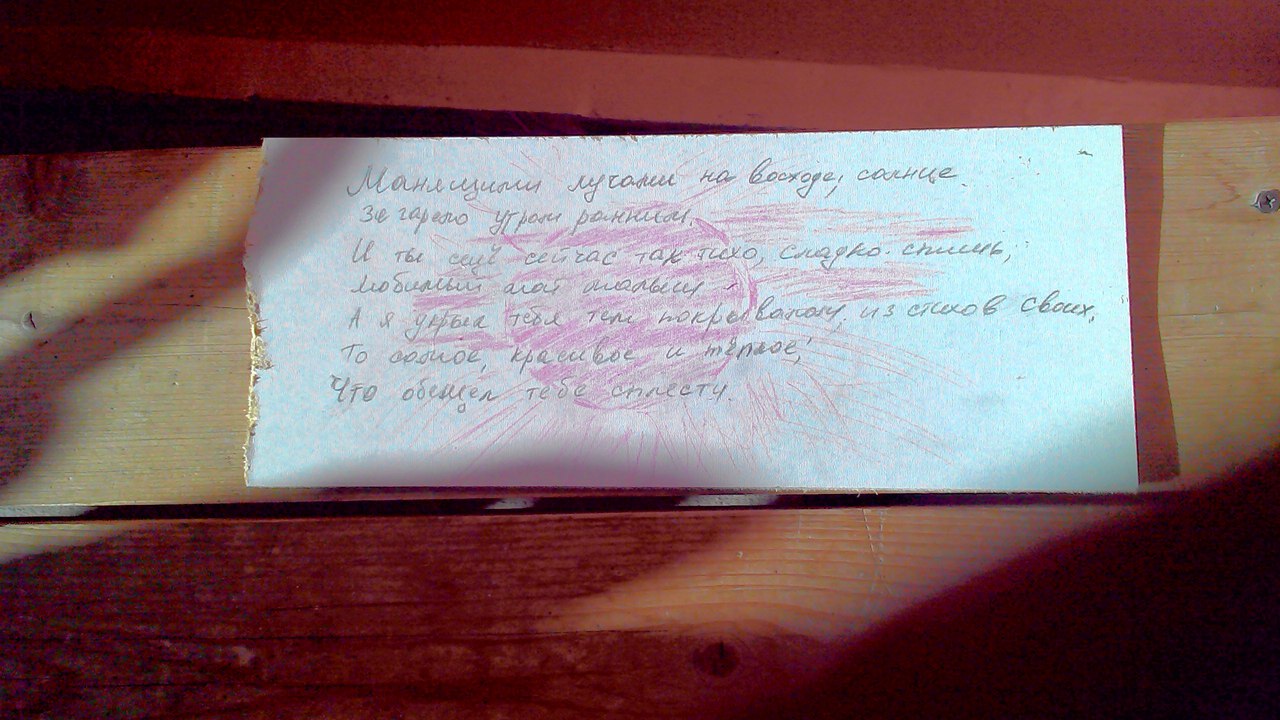 Манящими лучами на восходе, солнце
Загарело утром ранним,
И ты ещё сейчас так тихо, сладко спишь,
Любимый мой малыш.
А я укрыл тебя тем покрывалом, из стихов своих,
То самое, красивое и тёплое,
Что обещал тебе сплести.